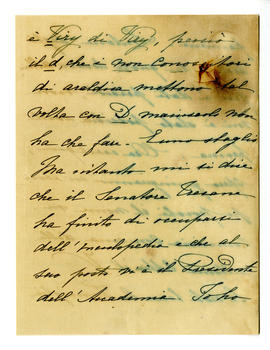 è Viry di Viry, perciò
il d, che i non conoscitori
di araldica mettono tal
volta con D maiuscolo non
ha che fare. È uno sbaglio
Ma intanto mi si dice
che il Senatore
ha finito di occuparsi
dell'Enciclopedia e che al
suo posto vi è il Presidente
dell'Accademia. Io ho